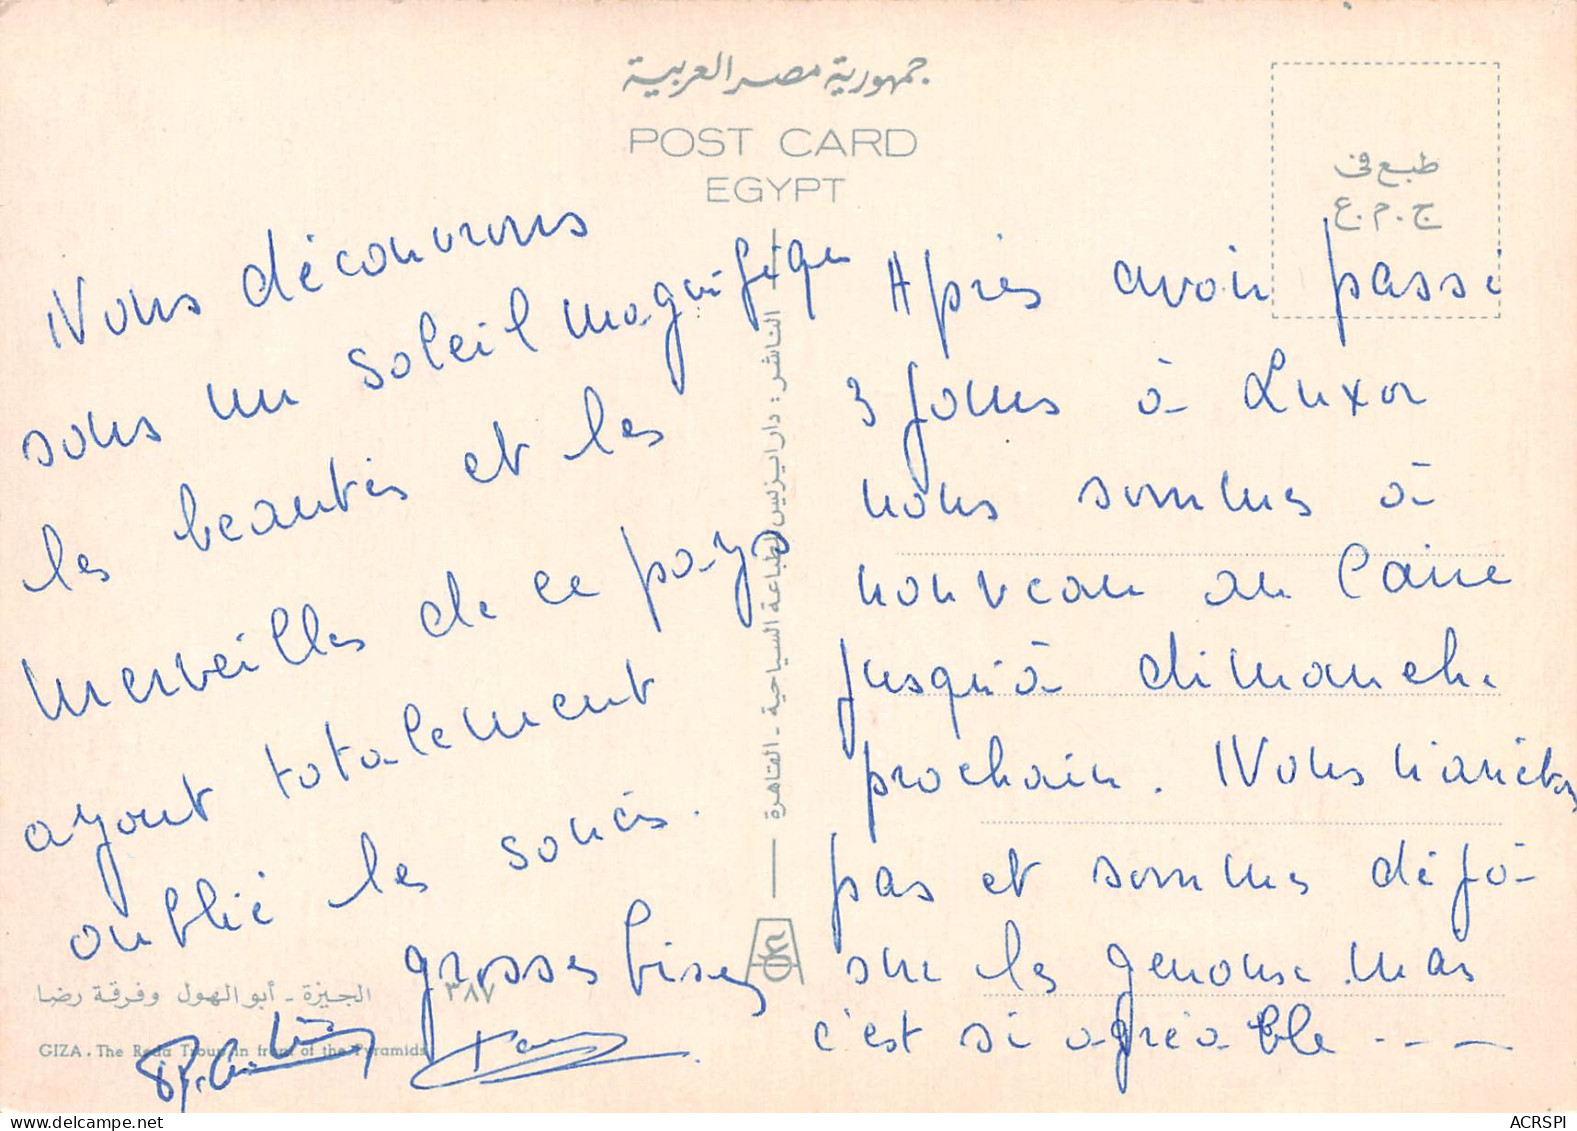 جمهورية مصر العربية
POST CARD
EGYPT
طبع فى
ج.م.ع
Nous découvrons
sous un soleil magnifique
les beautés et les
merveilles de ce pays
ayant totalement
oublié les soucis.
grosses bises
Après avoir passé
3 jours à Luxor
nous sommes à
nouveau au Caire
jusqu'à dimanche
prochain. Nous n'arrêtons
pas et sommes déjà
sur les genoux mais
c'est si agréable - - -
الناشر: دار ايزيس للطباعة السياحية - القاهرة
الجيزة - أبو الهول وفرقة رضا
٣٨٧
GIZA. The Reda Troup in front of the Pyramids
delcampe.net
ACRSPI